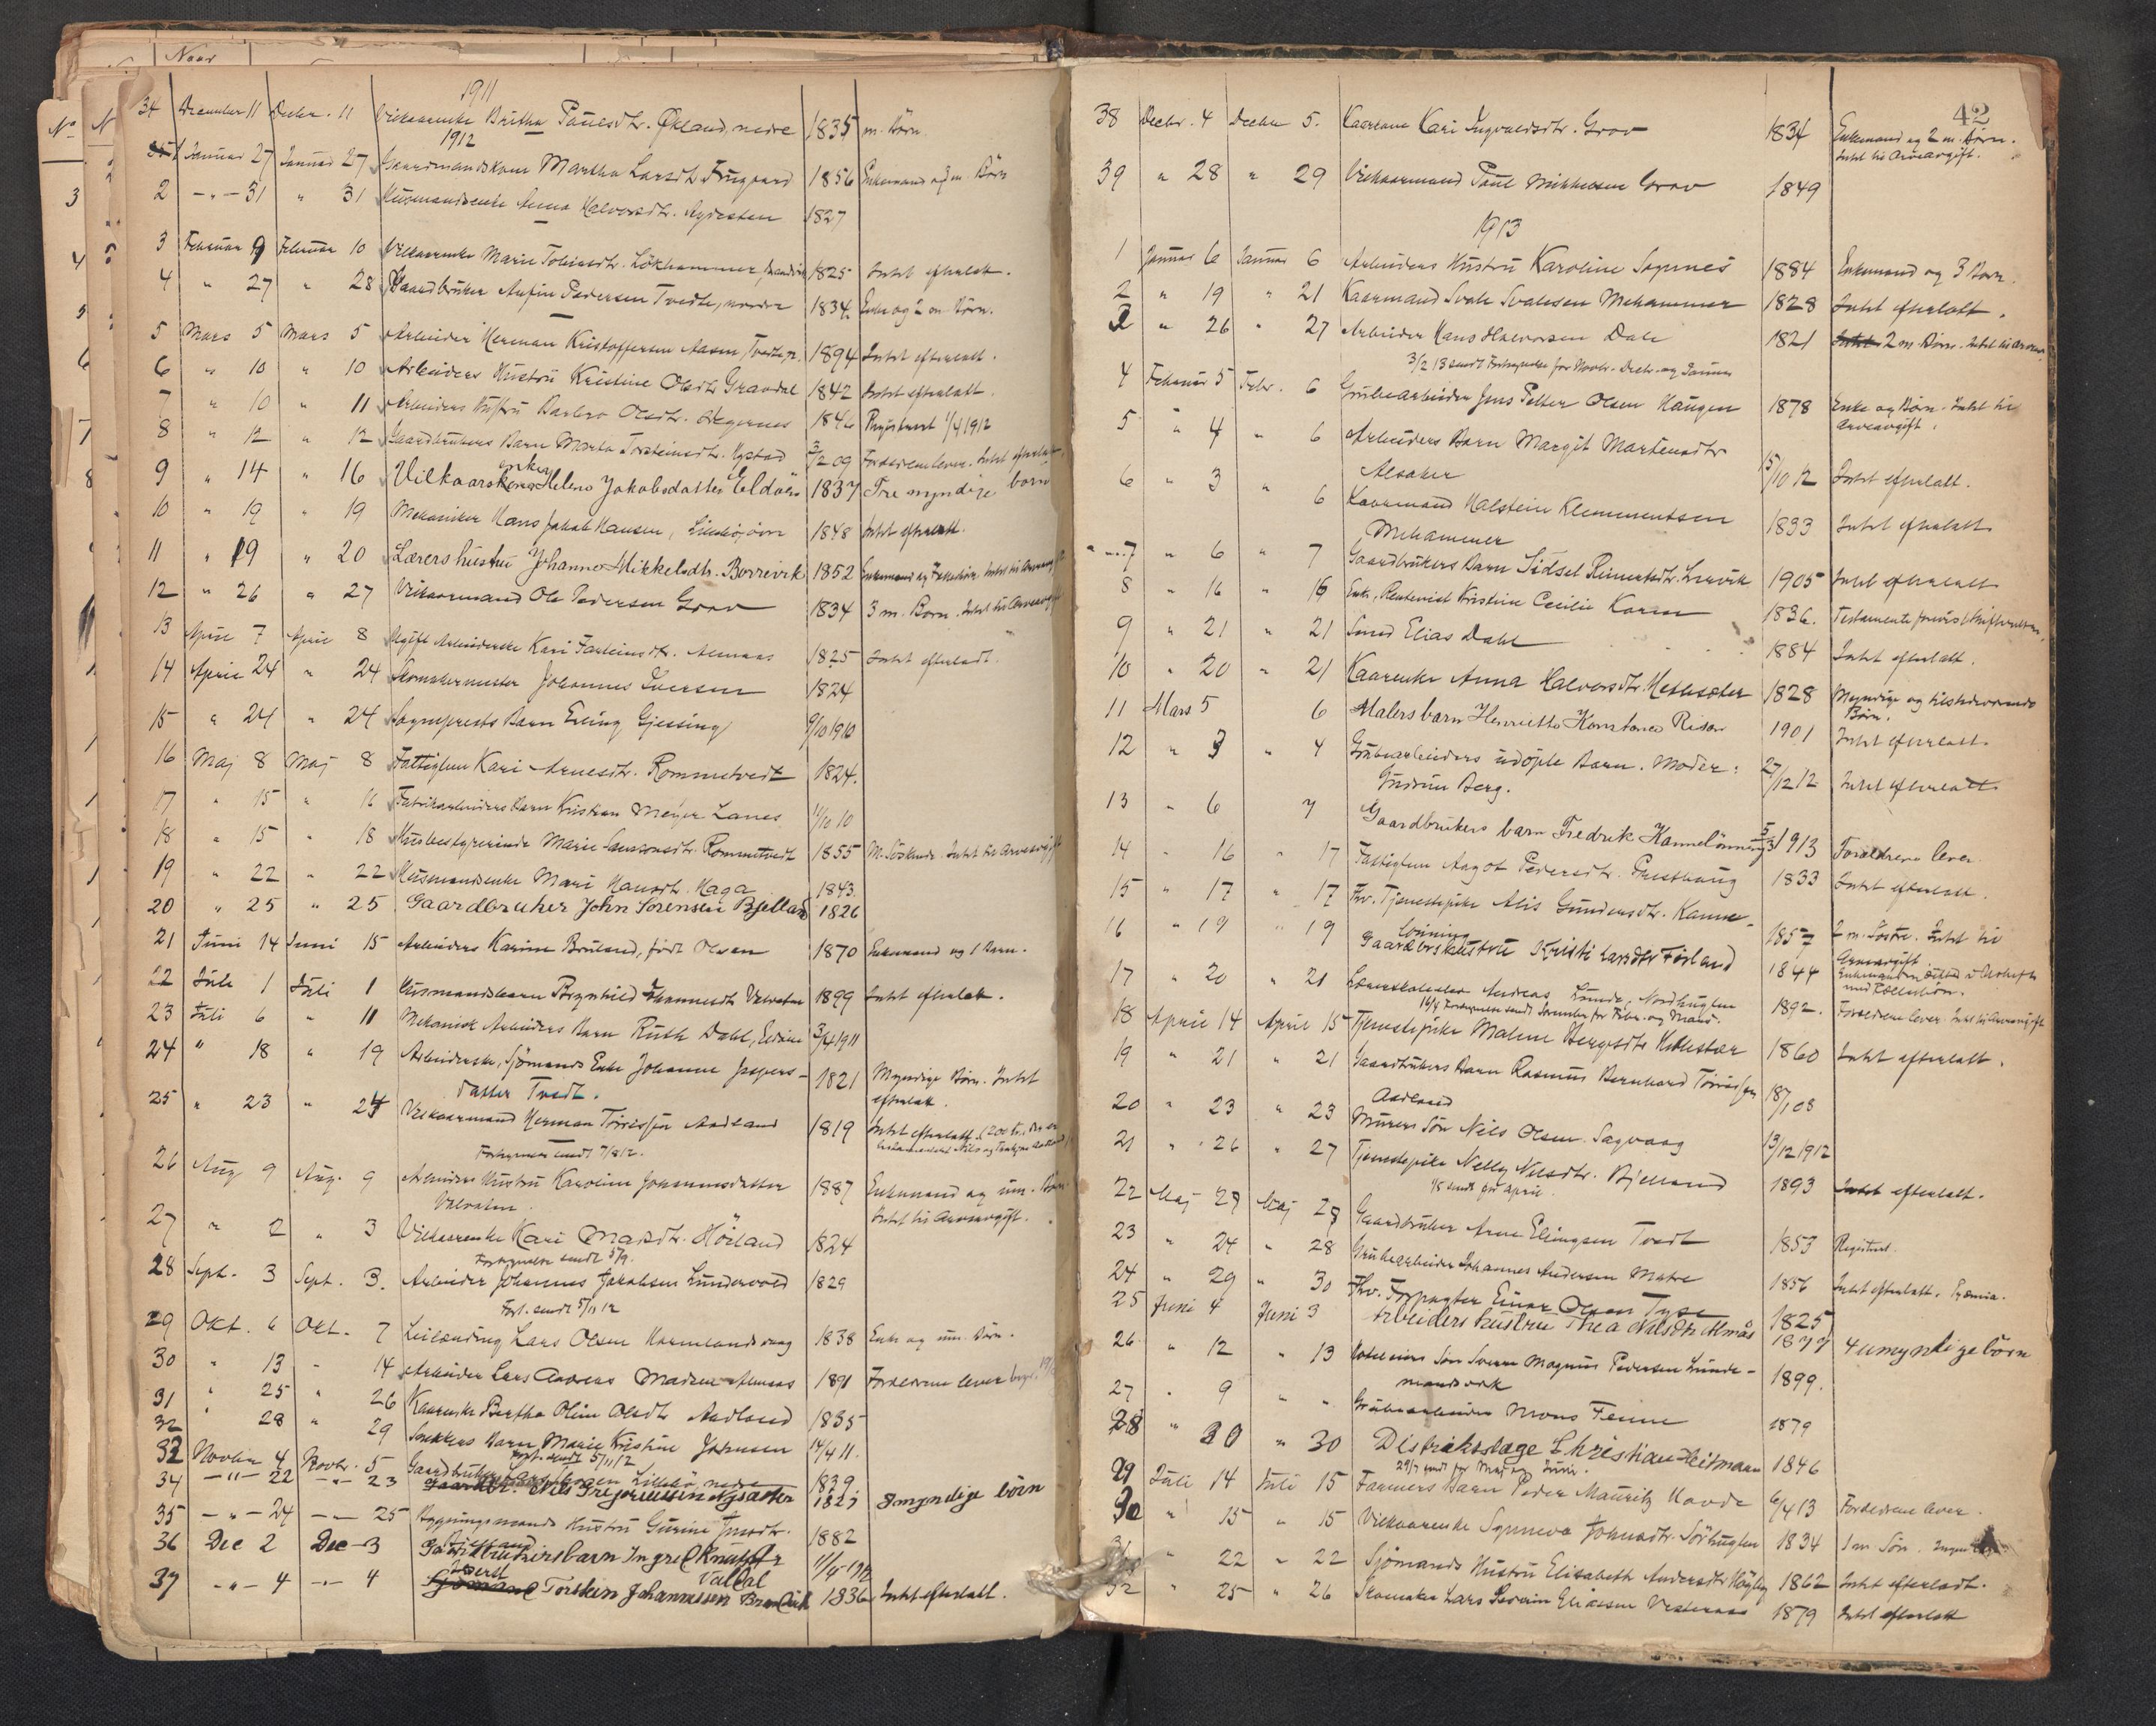 Naar
No
1911
34 December 11 Decbr. 11 Vilkaarenke Britha Paulsdtr. Økland, nedre 1835 m. Børn.
1912
1 Januar 27 Januar 27 Gaardmandskone Martha Larsdtr. 1856 Enkemand og m. Børn
2 -"- 31 " 31 Husmandsenke Anna Halvorsdtr. 1827
3 Februar 9 Februar 10 Vilkaarenke Marie Tobiasdtr. Lökhammer, 1825 Intet efterladt.
4 " 27 " 28 Gaardbruker Anfin Pedersen Tvedte, nordre 1834 Enke og 2 m. Børn.
5 Mars 5 Mars 5 Arbeider Herman Kristoffersen Aasen, 1894 Intet efterlatt.
6 " 10 " 10 Arbeiders Hustru Kristine Olsdtr. Gravdal 1842 Intet efterlatt.
7 " 10 " 11 Arbeiders Hustru Barbro Olsdtr. 1846 Registreret 1/4 1912
8 " 12 " 12 Gaardbrukers Barn Marta Torsteinsdtr. Nystad 09 Forældrene lever. Intet efterlatt.
enke
9 " 14 " 16 Vilkaarskone Helene Jakobsdatter Eldøen 1837 Tre myndige børn
10 " 19 " 19 Mekaniker Hans Jakob Hansen, 1848 Intet efterlatt.
11 " 19 " 20 Lærershustru Johanne Mikkelsdtr. Borrevik 1852 Enkemand og
12 " 26 " 27 Vilkaarmand Ole Pedersen Grov 1834 3 m. Børn. Intet til Arveavgift
13 April 7 April 8 Ugift Arbeiderske Kari Almaas 1825 Intet efterladt.
14 April 24 " 24 Skomakermester Johannes Iversen 1824
15 " 24 " 24 Sogneprests Barn Erling Gjessing 9/10 1910
16 Maj 8 Maj 8 Fattiglem Kari Arnesdtr. Rommetvedt 1824.
17 " 15 " 16 Fabrikarbeiders Barn Kristian Meyer Lanes 11/10 10
18 " 15 " 18 Husbestyrerinde Marie Rommetvedt 1855 M. Söskende. Intet til Arveavgift
19 " 22 " 22 Husmandsenke Mari Hansdtr. Haga 1843
20 " 25 " 25 Gaardbruker John Sørensen Bjelland 1826
21 Juni 14 Juni 15 Arbeiders Karine Bruland, født Olsen 1870 Enkemand og 1 Barn.
22 Juli 1 Juli 1 Husmandsbarn Brynhild Johannesdtr. Valvatne 1899 Intet efterlat.
23 Juli 6 " 11 Mekanisk Arbeiders Barn Ruth Dahl, Eldøen 3/4 1911
24 " 18 " 19 Arbeiderske, Sjömands Enke Johanne Jespers- 1821 Myndige Børn. Intet
datter Tvedt. efterlat.
25 " 23 " 24 Vilkaarmand Herman Tørrissen Aadland 1819 Intet efterlatt.
Fortegnelse sendt 7/8 12.
26 Aug 9 Aug. 9 Arbeiders Hustru Karoline Johannesdatter 1887 Enkemand og um. Børn.
Valvatne. Intet til Arveavgift.
27 " 2 " 3 Vilkaarenke Kari Madsdtr. Höiland 1824
Fortegnelse sendt 5/9.
28 Sept. 3 Sept. 3. Arbeider Johannes Jakobsen Lundervold 1829
Fort. sendt 5/11 12
29 Okt. 6 Okt. 7 Leilænding Lars Olsen 1838 Enke og um. Børn.
30 " 13 " 14 Arbeider Lars Andreas Madsen Almaas 1891 Forældrene lever
31 " 25 " 26 Kaarenke Bertha Oline Olsdtr. Aadland 1835
32 " 28 " 29 Snekkers Barn Marie Kristine Johnsen 14/4 11.
Fort. sendt 5/11 12
33 Novbr. 4 Novbr. 5 Gaardbruker Lars 1839.
34 -"- 22 -"- 23 Gaardbr. Nils Gregoriussen Nysæter 1827 8 myndige börn
35 -"- 24 -"- 25 Bygningsmands Hustru Gurine 1882
36 Dec 2 Dec 3 Gaardbrukersbarn Ingrel Knutsdtr 11/4 1912
Valdal
37 -"- 4 -"- 4 Torsken Johannessen 1836 Intet efterlatt.
42
38 Decbr. 4 Decbr 5. Kaarkone Kari Ingvaldsdtr. Grov 1834 Enkemand og 2 m. Børn.
Intet til Arveavgift.
39 " 28 " 29 Vilkaarmand Paul Mikkelsen Grov 1849
1913
1 Januar 6 Januar 6 Arbeiders Hustru Karoline Sagnnes 1884 Enkemand og 3 Børn.
2 " 19 " 21 Kaarmand Svale Svalesen Mehammer 1828 Intet efterlatt.
3 " 26 " 27 Arbeider Hans Halvorsen Dale 1821 Intet 2 m Børn. Intet til
3/2 13 sendt Fortegnelse for Novbr. Decbr. og Januar
4 Februar 5 Febr. 6 Grubearbeider Jens Petter Olsen Haugen 1878 Enke og Børn. Intet til
Arveavgift.
5 " 4 " 6 Arbeiders Barn Margit Martensdtr 15/10 12 Intet efterlatt.
Alsaker
6 " 3 " 6 Kaarmand Halstein Klemmentsen 1833 Intet efterlatt
Mehammer
7 " 6 " 7 Gaardbrukers Barn Sidsel Reinertsdtr. Lervik 1905 Intet efterlatt
8 " 16 " 16 Enke, Rentenist Kristine Cecilie Karm 1836. Testamente
9 " 21 " 21 Smed Elias Dahl 1884 Intet efterlatt.
10 " 20 " 21 Kaarenke Anna Halvorsdtr. Hettesæter 1828 Myndige og tilstedeværende
Børn.
11 Mars 5 6 Malers barn Henriette Konstance Risøn 1901 Intet efterlatt.
12 " 3 " 4 Grubearbeiders udöpte Barn. Moder: 27/12 12 Intet efterlatt.
Gudrun Berg.
13 " 6 7 Gaardbrukers barn Fredrik Hannelönning 5/3 1913 Forældrene lever
14 " 16 " 17 Fattiglem Aagot Pedersdtr. 1833 Intet efterlatt.
15 " 17 " 17 Fhv. Tjenestepike Alis Gundersdtr. Kanne- 1857 2 m. Søstre. Intet til
lönning Arveavgift.
16 " 19 " 19 Gaardbrshustru Kristi Larsdtr Førland 1844
17 " 20 " 21 Lærerskoleelev Andreas Lunde, Nordhuglen 1892. Forældrene lever. Intet til Arveavgift
18 April 14 April 15 Tjenestepike Malene Hettesæter 1860 Intet efterlatt.
19 " 21 " 21 Gaardbrukers Barn Rasmus Bernhard Tørrissen 18/1 08
Aadland
20 " 23 " 23 Murers Søn Nils Olsen. Sagvaag 13/12 1912
21 " 26 " 27 Tjenestepike Nelly Nilsdtr. Bjelland 1893 Intet efterlatt.
1/5 sendt for april.
22 Maj 27 Maj 28 Gaardbruker Arne Elingsen Tvedt 1853 Registrert.
23 " 24 " 28 Grubearbeider Johannes Andersen Matre 1856 Intet efterlatt.
24 " 29 " 30 Fhv. Forpagter Einar Olsen Tyse 1825
25 Juni 4 Juni 3 Arbeiders hustru Thea Nilsdtr Almås 1877 4 umyndige börn
26 " 12 " 13 Søn Sverre Magnus Pedersen Lunde- 1899.
mandsverk
27 " 9 " " Grubearbeider Mons Fenne 1879
28 " 30 " 30 Distriktslæge Christian Heitmann 1846
29/7 sendt for Maj og Juni.
29 Juli 14 Juli 15 Farmers Barn Peder Mauritz Hovde 6/4 13 Forældrene lever.
30 " 15 " 15 Vilkaarenke Synneva Johnsdtr. Sörhuglen 1834 1 m. Søn.
31 " 22 " 22 Sjömands Hustru Elisabeth Andersdtr Høyby 1862 Intet efterladt.
32 25 " 26 Skomaker Lars Severin Eliassen 1879 Intet efterlatt